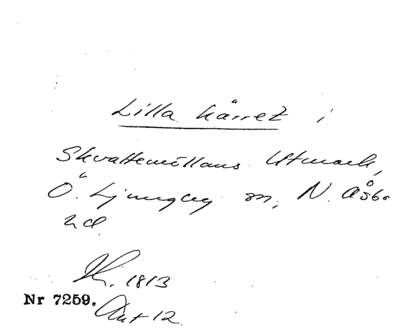 Lilla kärret i
Skvattemöllans Utmark,
Ö. Ljungby sn, N. Åsbo
hd.
K. 1813
Nr 7259. Akt 12